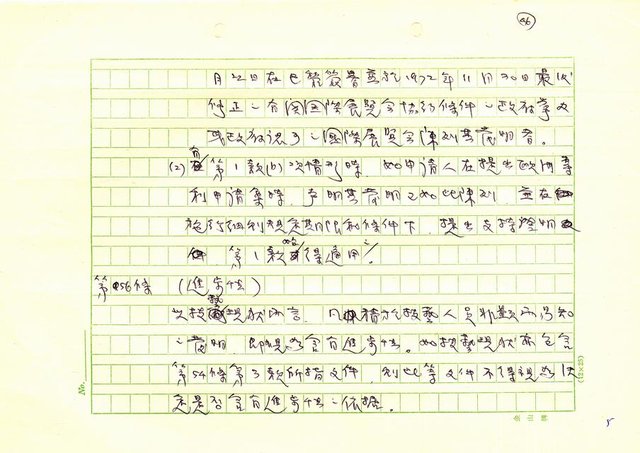 56
月22日在巴黎簽署並於1972年11月30日最後
修正之有關國際展覽會協約條件之政府舉辦
或政府認可之國際展覽會陳列其發明者。
(2) 有第1款(b)項情形時,如申請人在提出歐洲專
利申請案時,聲明其發明已如此陳列,並在
施行細則規定期限和條件下,提出支持證明文
件,第1款始得適用之。
第56條 (進步性)
次按技藝現狀而言,凡精於技藝人員非顯而易知
之發明,即視為含有進步性。如技藝現狀亦包含
第54條第3款所指文件,則此等文件不得視為決
定是否含有進步性之依據。
No.
(12×25)
5